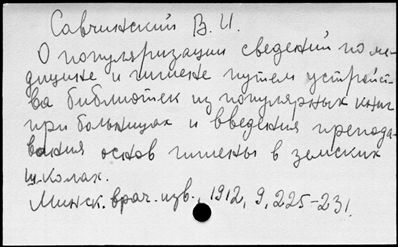 Савчинский В. И.
О популяризации сведений по ме-
дицине и гигиене путем устройст-
ва библиотек из популярных книг
при больницах и введения препода-
вания основ гигиены в земских
школах.
Минск. врач. изв., 1912, 9, 225-231.